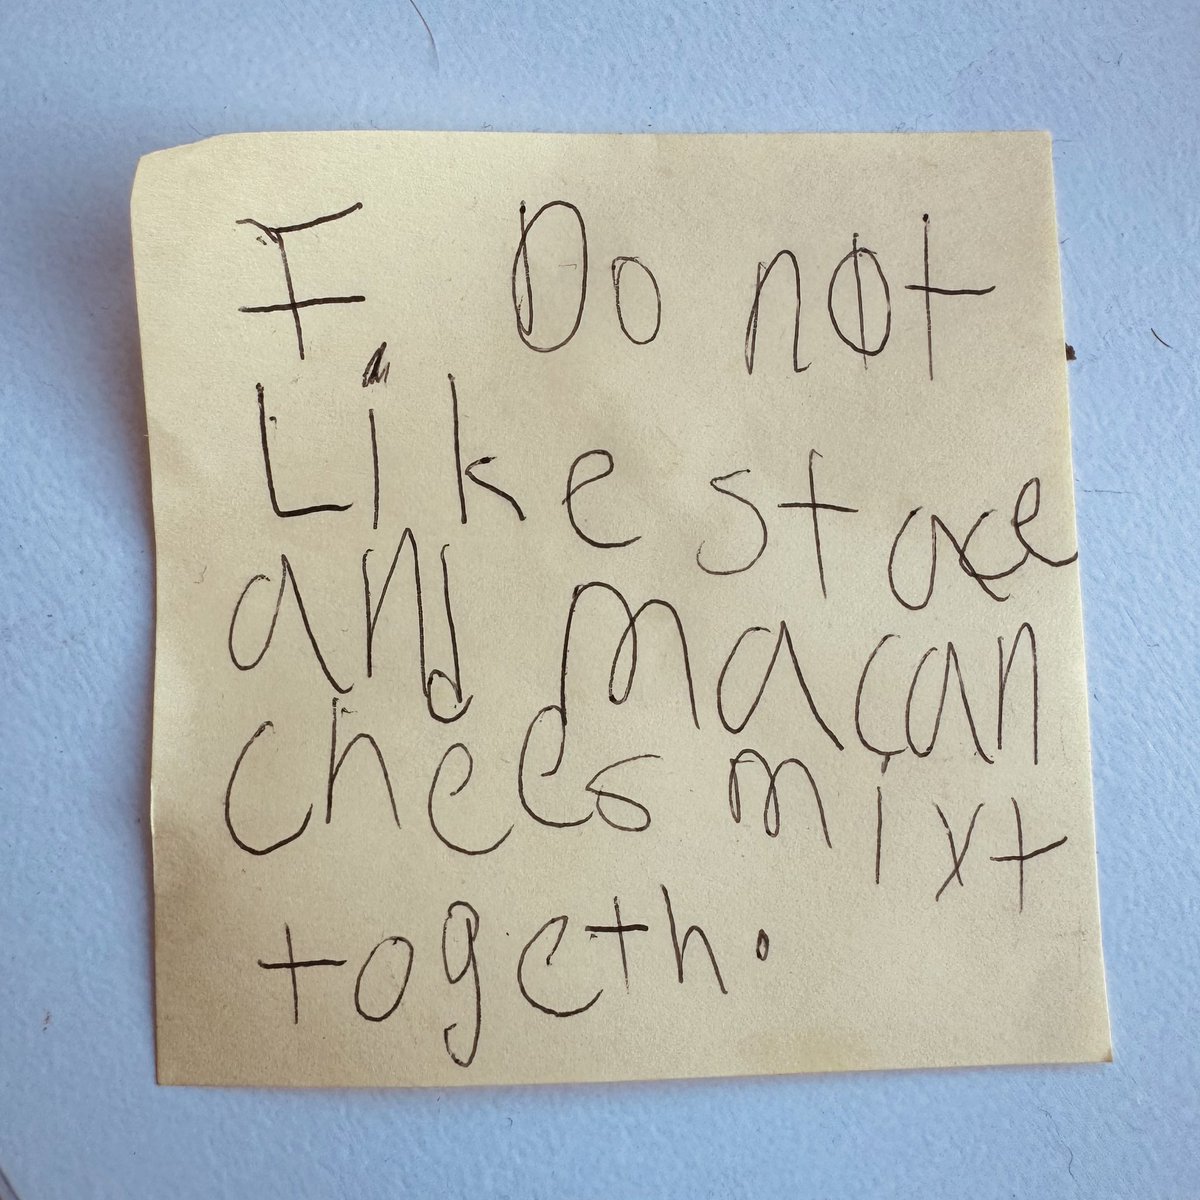 I Do not
Like stace
and macan
chees mixt
togeth.